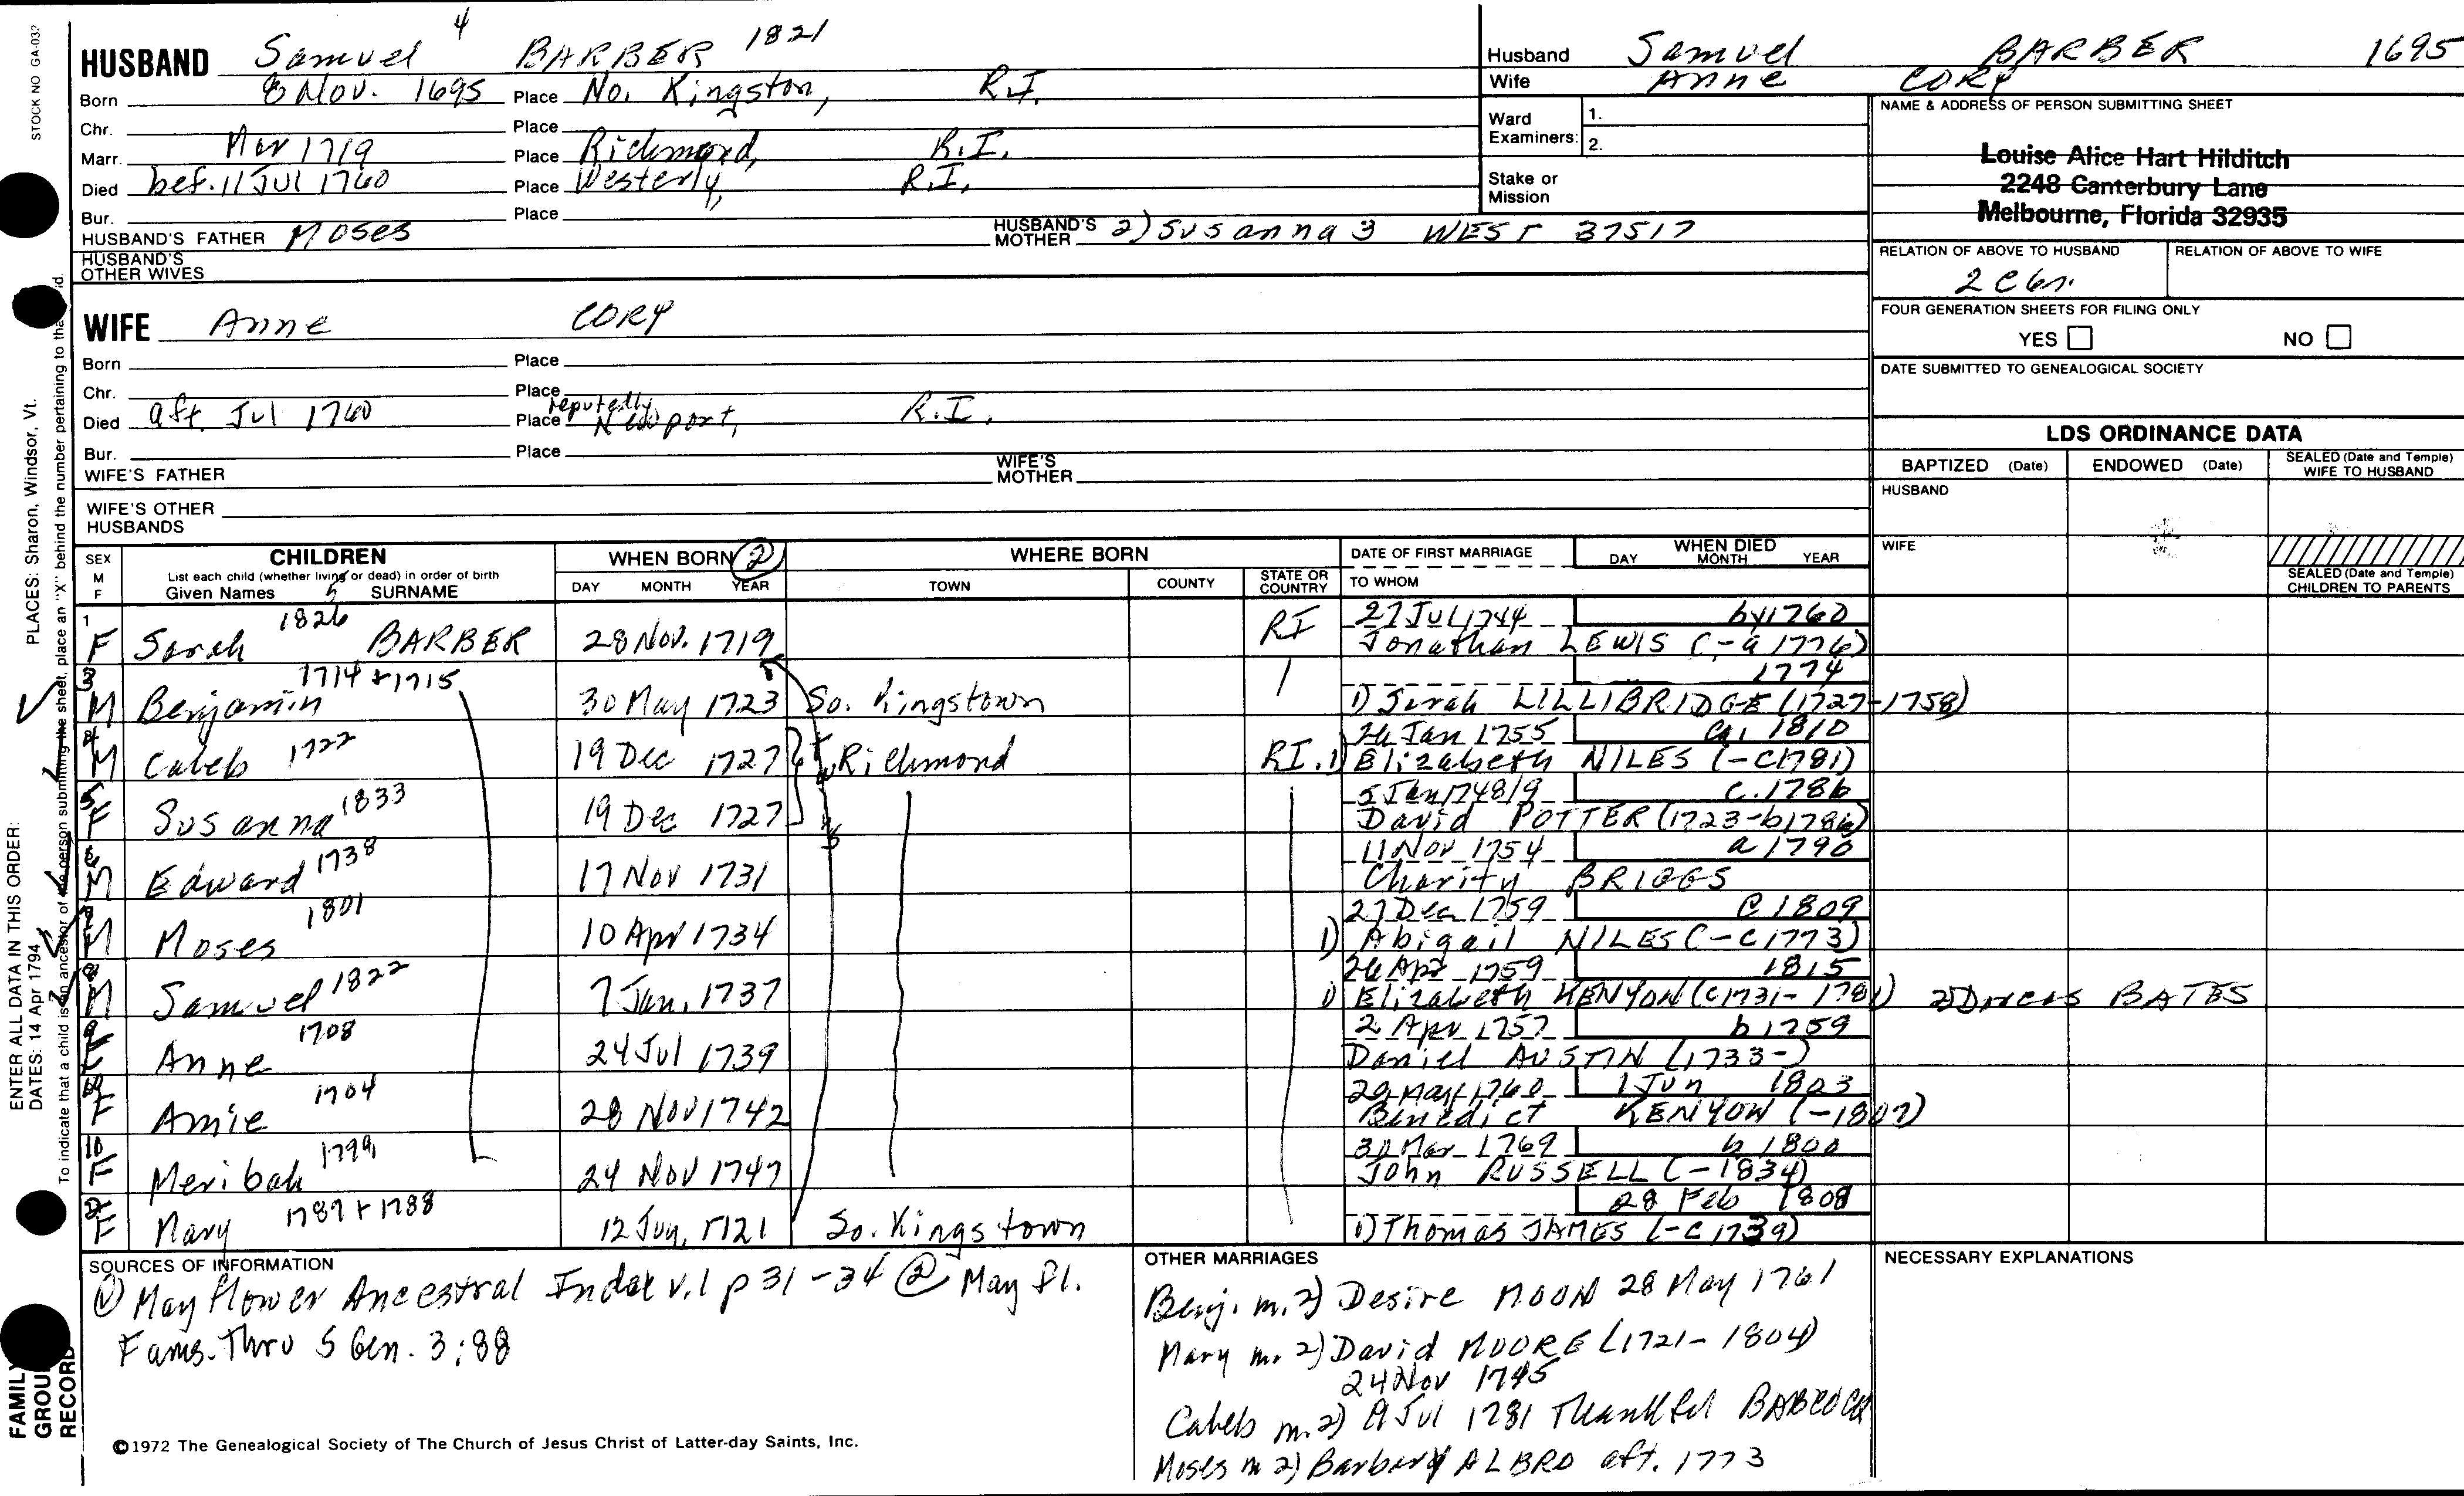 STOCK NO GA-032
4
HUSBAND Samuel BARBER 1821
Born 8 Nov. 1695 Place No. Kingston, R.I.
Chr. Place
Marr. Mar 1719 Place Richmond, R.I.
Died bef. 11 Jul 1760 Place Westerly, R.I.
Bur. Place
HUSBAND'S FATHER Moses HUSBAND'S MOTHER 2) Susanna 3 WEST 37517
HUSBAND'S OTHER WIVES
WIFE Anne CORY
Born Place
Chr. Place
Died aft. Jul 1760 Place reputedly Newport, R.I.
Bur. Place
WIFE'S FATHER WIFE'S MOTHER
WIFE'S OTHER HUSBANDS
Husband Samuel BARBER 1695
Wife Anne CORY
Ward Examiners: 1.
2.
Stake or Mission
NAME & ADDRESS OF PERSON SUBMITTING SHEET
Louise Alice Hart Hilditch
2248 Canterbury Lane
Melbourne, Florida 32935
RELATION OF ABOVE TO HUSBAND RELATION OF ABOVE TO WIFE
FOUR GENERATION SHEETS FOR FILING ONLY
YES NO
DATE SUBMITTED TO GENEALOGICAL SOCIETY
LDS ORDINANCE DATA
BAPTIZED (Date) ENDOWED (Date) SEALED (Date and Temple) WIFE TO HUSBAND
HUSBAND
WIFE
SEALED (Date and Temple) CHILDREN TO PARENTS
SEX M F
CHILDREN
List each child (whether living or dead) in order of birth
Given Names 5 SURNAME
WHEN BORN 2
DAY MONTH YEAR
WHERE BORN
TOWN COUNTY STATE OR COUNTRY
DATE OF FIRST MARRIAGE
TO WHOM
WHEN DIED
DAY MONTH YEAR
1 F Sarah 1826 BARBER 28 Nov. 1719 RI 27 Jul 1744 by 1760
Jonathan LEWIS (-a 1776)
3 M Benjamin 1714 + 1715 30 May 1723 So. Kingstown 1774
1) Sarah LILLIBRIDGE (1727-1758)
4 M Caleb 1722 19 Dec 1727 Richmond RI. 26 Jan 1755 ca. 1810
1) Elizabeth NILES (-c1781)
5 F Susanna 1833 19 Dec 1727 5 Jan 1748/9 c. 1786
David POTTER (1723-b1786)
6 M Edward 1738 17 Nov 1731 11 Nov 1754 a 1790
Charity BRIGGS
7 M Moses 1801 10 Apr 1734 27 Dec 1759 c 1809
1) Abigail NILES (-c1773)
8 M Samuel 1822 7 Jan. 1737 26 Apr 1759 1815
1) Elizabeth KENYON (c1731-1781) 2) Dorcas BATES
9 F Anne 1708 24 Jul 1739 2 Apr 1757 b 1759
Daniel AUSTIN (1733-)
10 F Amie 1704 28 Nov 1742 29 May 1760 1 Jun 1803
Benedict KENYON (-1807)
10 F Meribah 1799 24 Nov 1747 30 Mar 1769 b 1800
John RUSSELL (-1834)
2 F Mary 1787 + 1788 12 Jun, 1721 So. Kingstown 28 Feb 1808
1) Thomas JAMES (-c 1739)
SOURCES OF INFORMATION
1 Mayflower Ancestral Index v.1 p 31-34 2 May Fl.
Fams. Thru 5 Gen. 3:88
OTHER MARRIAGES
Benj. m. 2) Desire MOON 28 May 1761
Mary m. 2) David MOORE (1721-1804)
24 Nov 1745
Caleb m. 2) Jul 1781 Thankful BABCOCK
Moses m 2) Barbary ALBRO aft. 1773
NECESSARY EXPLANATIONS
©1972 The Genealogical Society of The Church of Jesus Christ of Latter-day Saints, Inc.
FAMILY GROUP RECORD
ENTER ALL DATA IN THIS ORDER:
DATES: 14 Apr 1794
PLACES: Sharon, Windsor, Vt.
To indicate that a child is an ancestor of the person submitting the sheet, place an "X" behind the number pertaining to